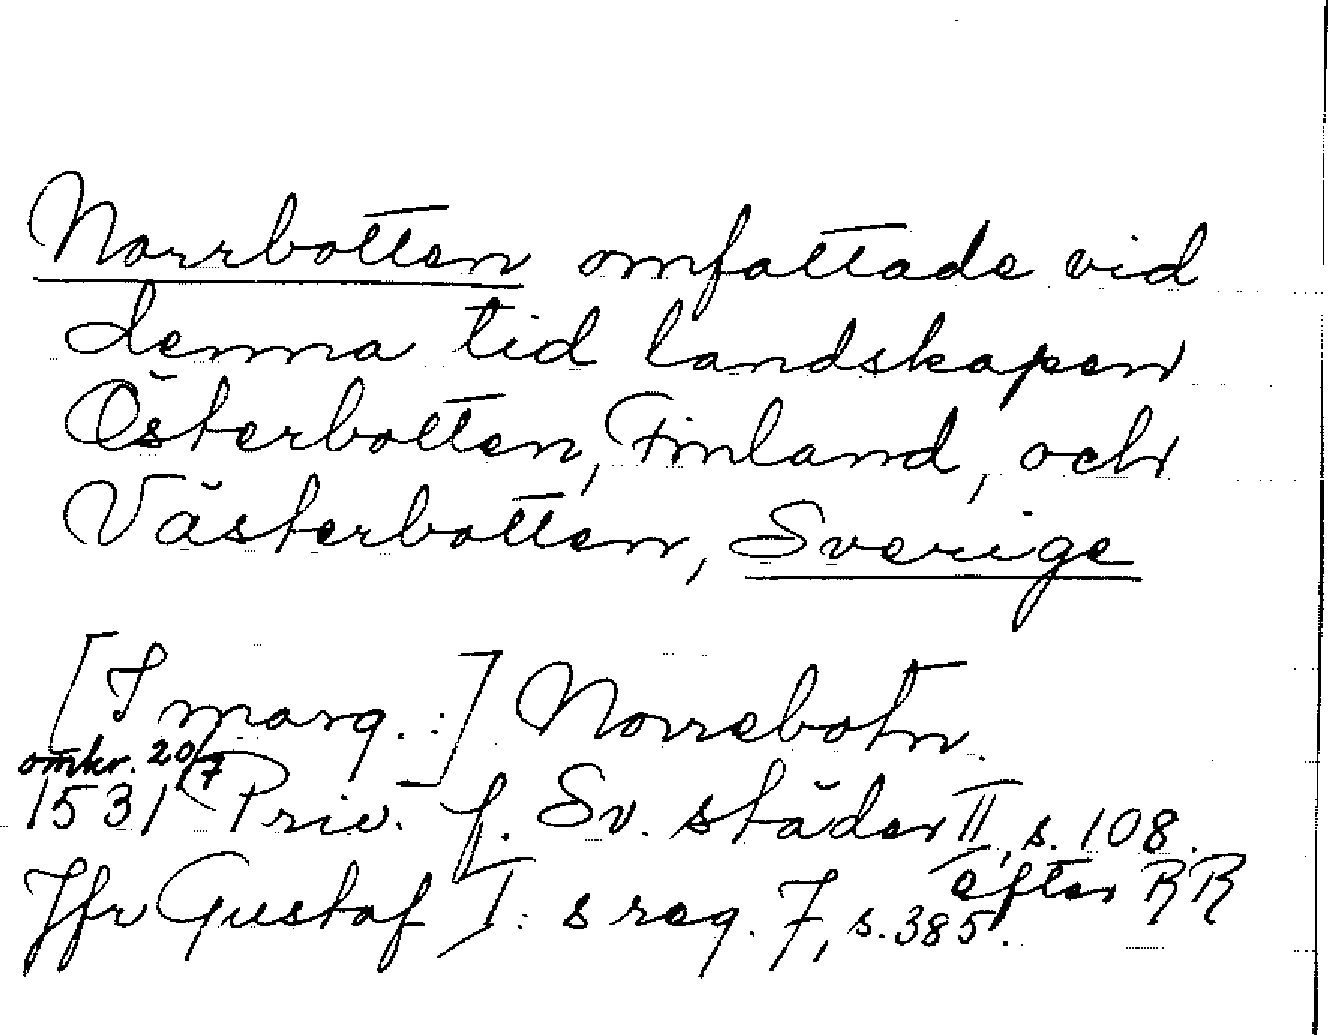 Norrbotten omfattade vid
denna tid landskapen
Österbotten, Finland, och
Västerbotten, Sverige
[I marg.:] Norrebotn
omkr. 20/7
1531 Priv. f. Sv. städer II, s. 108.
efter RR
Jfr Gustaf I:s reg. 7, s. 385.